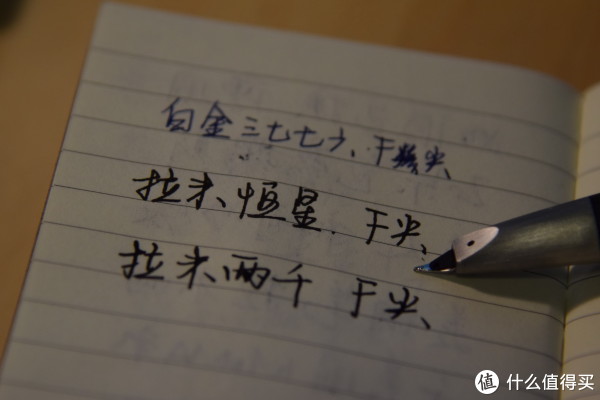 白金三七七六、F尖、
拉米恒星. F尖、
拉米两千 F尖、
值 什么值得买